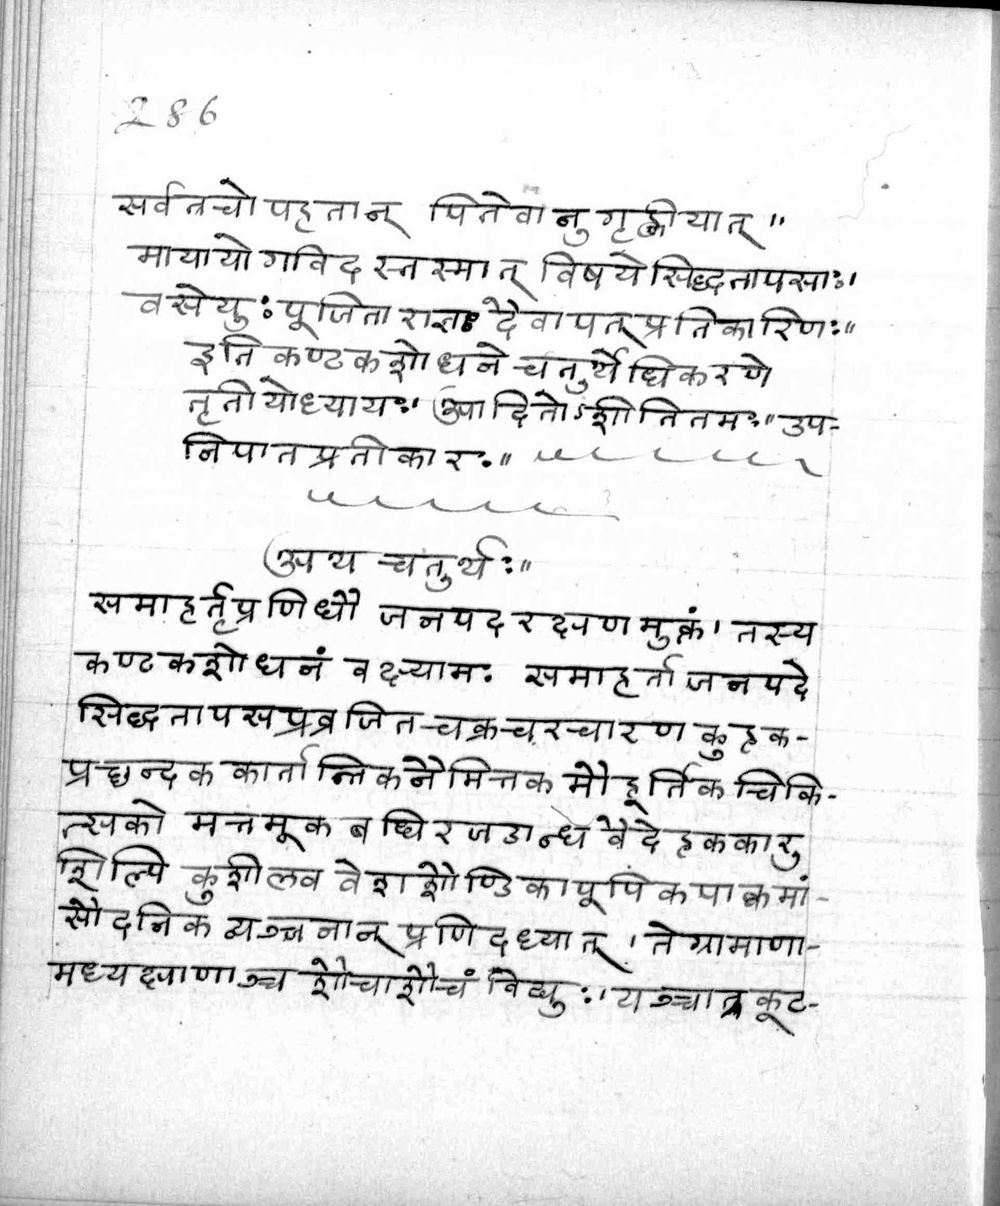 286
सर्वत्रचोपहतान् पितेवानुगृह्णीयात्॥
मायायोगविदस्तस्मात् विषयेसिद्धतापसाः।
वसेयुः पूजिता राज्ञा दैवापत्प्रतिकारिणः॥
इति कण्टकशोधने चतुर्थेधिकरणे
तृतीयोध्यायः। आदितोऽशीतितमः॥ उप-
निपातप्रतीकारः॥
अथ चतुर्थः॥
समाहर्तृप्रणिधौ जनपदरक्षणमुक्तं। तस्य
कण्टकशोधनं वक्ष्यामः समाहर्ता जनपदे
सिद्धतापसप्रव्रजित-चक्रचर-चारण कुहक-
प्रच्छन्दक कार्तान्तिकनैमित्तक मौहूर्तिक चिकि-
त्सको मत्तमूक बधिर जडान्ध वैदेहककारु
शिल्पि कुशीलव वेश शौण्डिकापूपिक पाक्वमां-
सौदनिक व्यञ्जनान् प्रणिदध्यात्। तेग्रामाणा-
मध्यक्षाणाञ्च शौचाशौचं विद्युः। यञ्चात्र कूट-